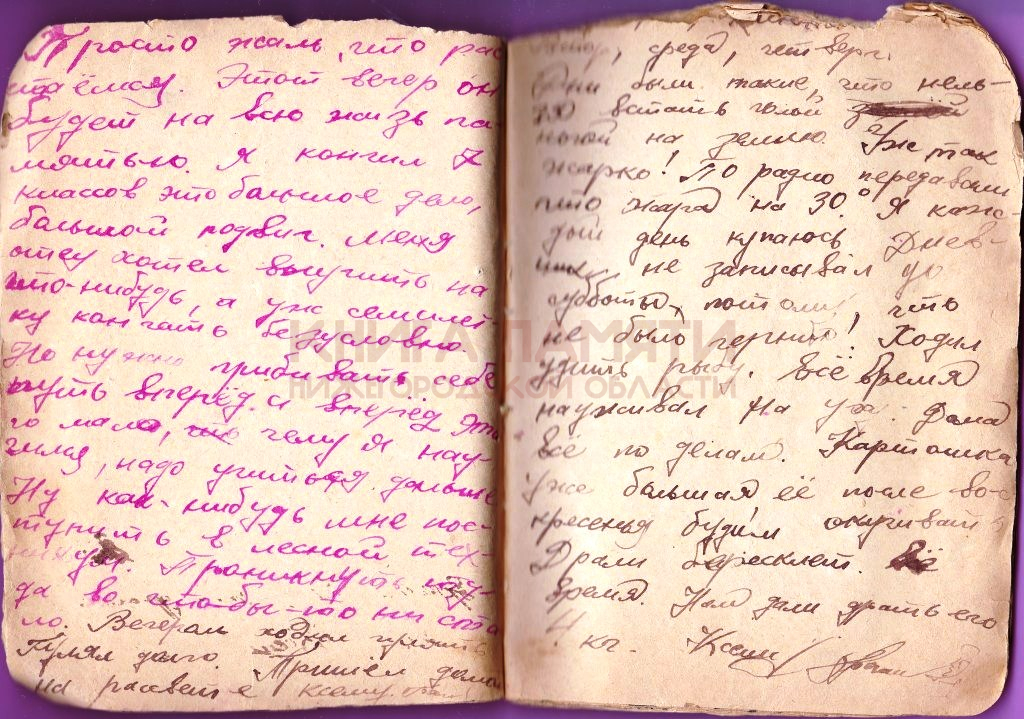 Просто жаль, что рас
таёмся. Этот вечер он
будет на всю жизь па-
мятью. Я кончил 7
классов это большое дело,
большой подвиг. Меня
отец хотел выучить на
что-нибудь, а уж семилет-
ку кончать безусловно
Но нужно пробивать себе
путь вперёд и вперёд это
го мало, что чему я нау-
чился, надо учиться дальше
Ну как-нибудь мне пос-
тупить в лесной тех-
никум. Проникнуть ту-
да во что-бы-то ни ста
ло. Вечером ходил гулять
Гулял долго. Пришёл домой
на рассвете
среда, четверг.
Дни были такие, что нель-
зя встать голой
ногой на землю. Уж так
жарко! По радио передавали
что жара на 30.° Я каж-
дый день купаюсь Днев-
ник не записывал до
субботы потому, что
не было чернил! Ходил
удить рыбу. Всё время
науживал на уху. Дома
всё по делам. Картошка
уже большая её после вос-
кресенья будим окучивать
Драли бересклет. Всё
время. Нам дали драть его
4 кг.
КНИГА ПАМЯТИ
НИЖЕГОРОДСКОЙ ОБЛАСТИ